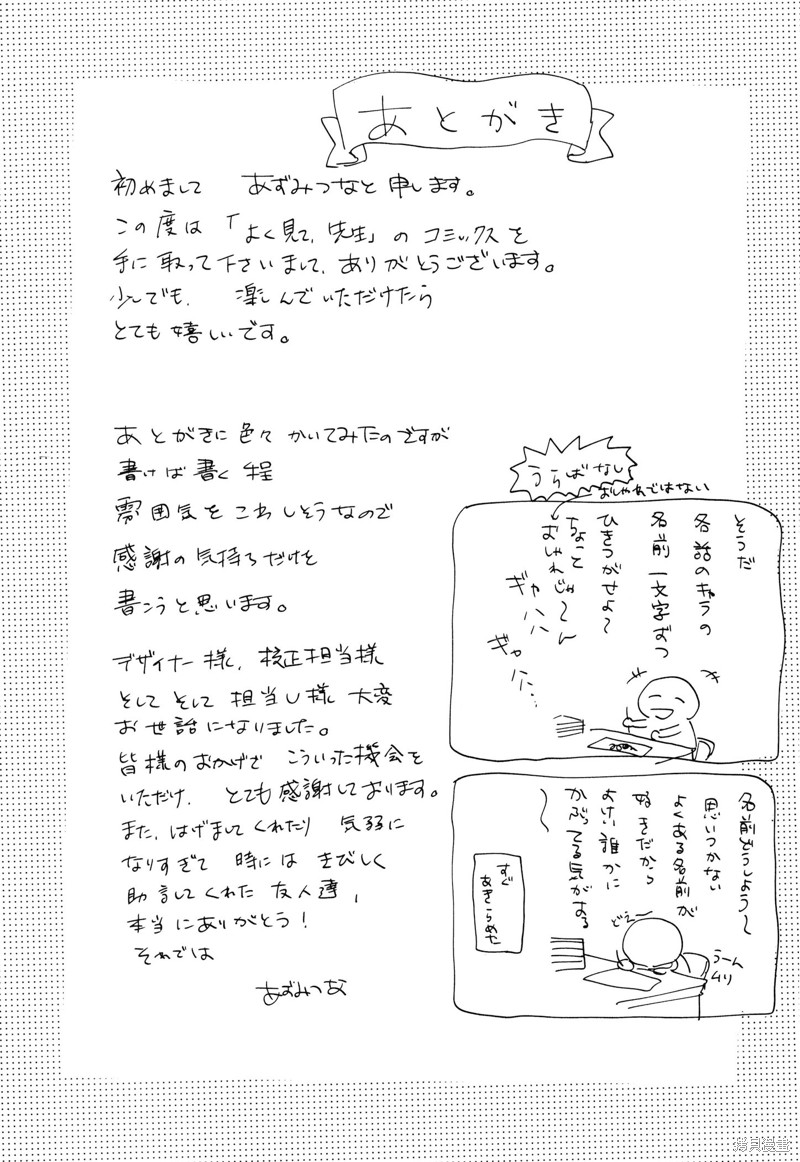 あとがき
初めまして　あずみつなと申します。
この度は「よく見て、先生」のコミックスを
手に取って下さいまして、ありがとうございます。
少しでも、楽しんでいただけたら
とても嬉しいです。
あとがきに色々かいてみたのですが
書けば書く程
雰囲気をこわしそうなので
感謝の気持ちだけを
書こうと思います。
デザイナー様、校正担当様
そしてそして担当U様　大変
お世話になりました。
皆様のおかげで　こういった機会を
いただけ、とても感謝しております。
また、はげましてくれたり　気弱に
なりすぎて　時には　きびしく
助言してくれた　友人達、
本当にありがとう！
それでは
あずみつな
うらばなし
おしゃれではない
そうだ
各話のキャラの
名前一文字ずつ
ひきつがせよ〜
ちょっと
おしゃれじゃ〜ん
ギャハハハ
ギャハハ…
名前どうしよう〜
思いつかない
よくある名前が
ぬきだから
よけい誰かに
かぶってる気がする
〜
すぐ
あきらめた
どえ〜
うーん
ムリ
拷貝漫畫